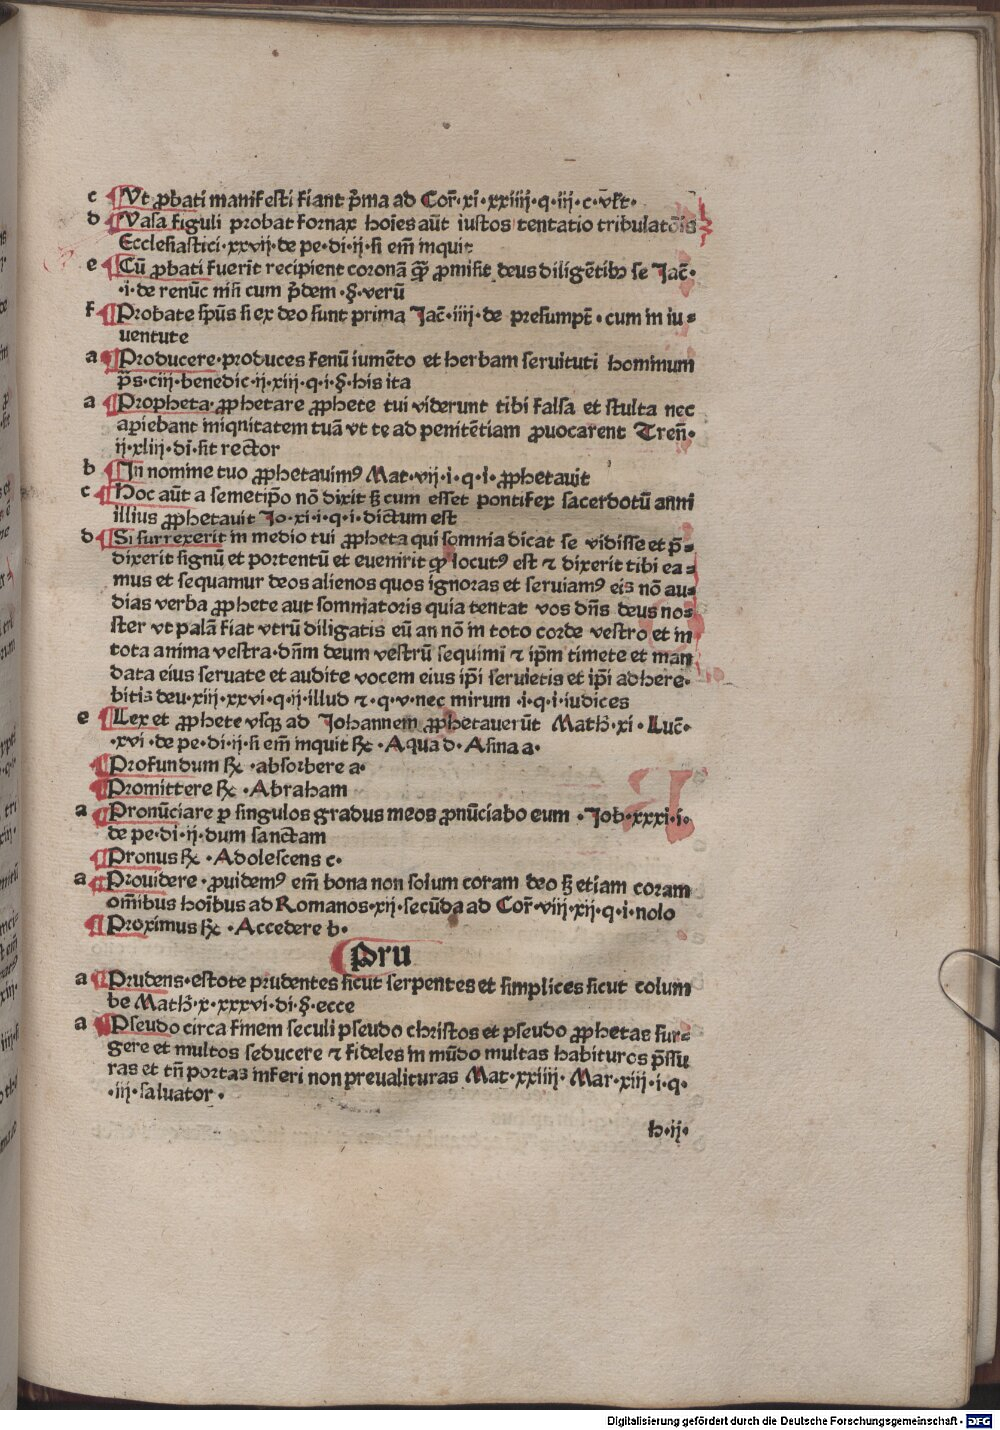 c Ut ꝓbati manifesti fiant p̄ma ad Cor̄·xi·xxiiij·q·iij·c·vl̄t·
d Vasa figuli probat fornax hoīes aūt iustos tentatio tribulatōis
Ecclesiastici·xxvij·de pe·di·ij·si em̄ inquit
e Cū ꝓbati fuerit recipient coronā qm̄ ꝓmisit deus diligētibꝫ se Jac̄·
·i·de renūc nisi cum p̄dem·§·verū
f Probate sp̄us si ex deo sunt prima Jac̄·iiij·de presumpt̄·cum in iu⸗
uentute
a Producere·produces fenū iumēto et herbam seruituti hominum
p̄s·ciij·benedic·ij·xiij·q·i·§·his ita
a Propheta·ꝓphetare ꝓphete tui viderunt tibi falsa et stulta nec
aꝑiebant iniqnitatem tuā vt te ad penitētiam ꝓuocarent Tren̄·
ij·xliij·di·sit rector
b In nomine tuo ꝓphetauimꝰ Mat·vij·i·q·i·ꝓphetauit
c Hoc aūt a semetip̄o nō dixit sꝫ cum esset pontifex sacerdotū anni
illius ꝓphetauit Jo·xi·i·q·i·dictum est
d Si surrexerit in medio tui ꝓpheta qui somnia dicat se vidisse et p̄⸗
dixerit signū et portentū et euenirit qꝫ locutꝰ est ⁊ dixerit tibi ea⸗
mus et sequamur deos alienos quos ignoras et seruiamꝰ eis nō au⸗
dias verba ꝓphete aut somniatoris quia tentat vos dn̄s deus no⸗
ster vt palā fiat vtrū diligatis eū an nō in toto corde vestro et in
tota anima vestra·dn̄m deum vestrū sequimi ⁊ ip̄m timete et man
data eius seruate et audite vocem eius ip̄i seruietis et ip̄i adhere·
bitis deu·xiij·xxvi·q·ij·illud ⁊·q·v·nec mirum·i·q·i·iudices
e Lex et ꝓphete vsqꝫ ad Johannem ꝓphetauerūt Math̄·xi·Luc̄·
·xvi·de pe·di·ij·si em̄ inquit ℞·Aqua d·Asina a·
Profundum ℞·absorbere a·
Promittere ℞·Abraham
a Pronūciare ꝑ singulos gradus meos ꝓnūciabo eum·Job·xxxi·i·
de pe·di·ij·dum sanctam
Pronus ℞·Adolescens c·
a Prouidere·ꝓuidemꝰ em̄ bona non solum coram deo sꝫ etiam coram
om̄ibus hoībus ad Romanos·xij·secūda ad Cor̄·viij·xij·q·i·nolo
Proximus ℞·Accedere b·
Pru
a Prudens·estote prudentes sicut serpentes et simplices sicut colum
be Math̄·x·xxxvi·di·§·ecce
a Pseudo circa finem seculi pseudo christos et pseudo ꝓphetas sur⸗
gere et multos seducere ⁊ fideles in mūdo multas habituros p̄ssu
ras et tn̄ portas inferi non preualituras Mat·xxiiij·Mar·xiij·i·q·
·iij·saluator·
h·ij·
Digitalisierung gefördert durch die Deutsche Forschungsgemeinschaft - DFG